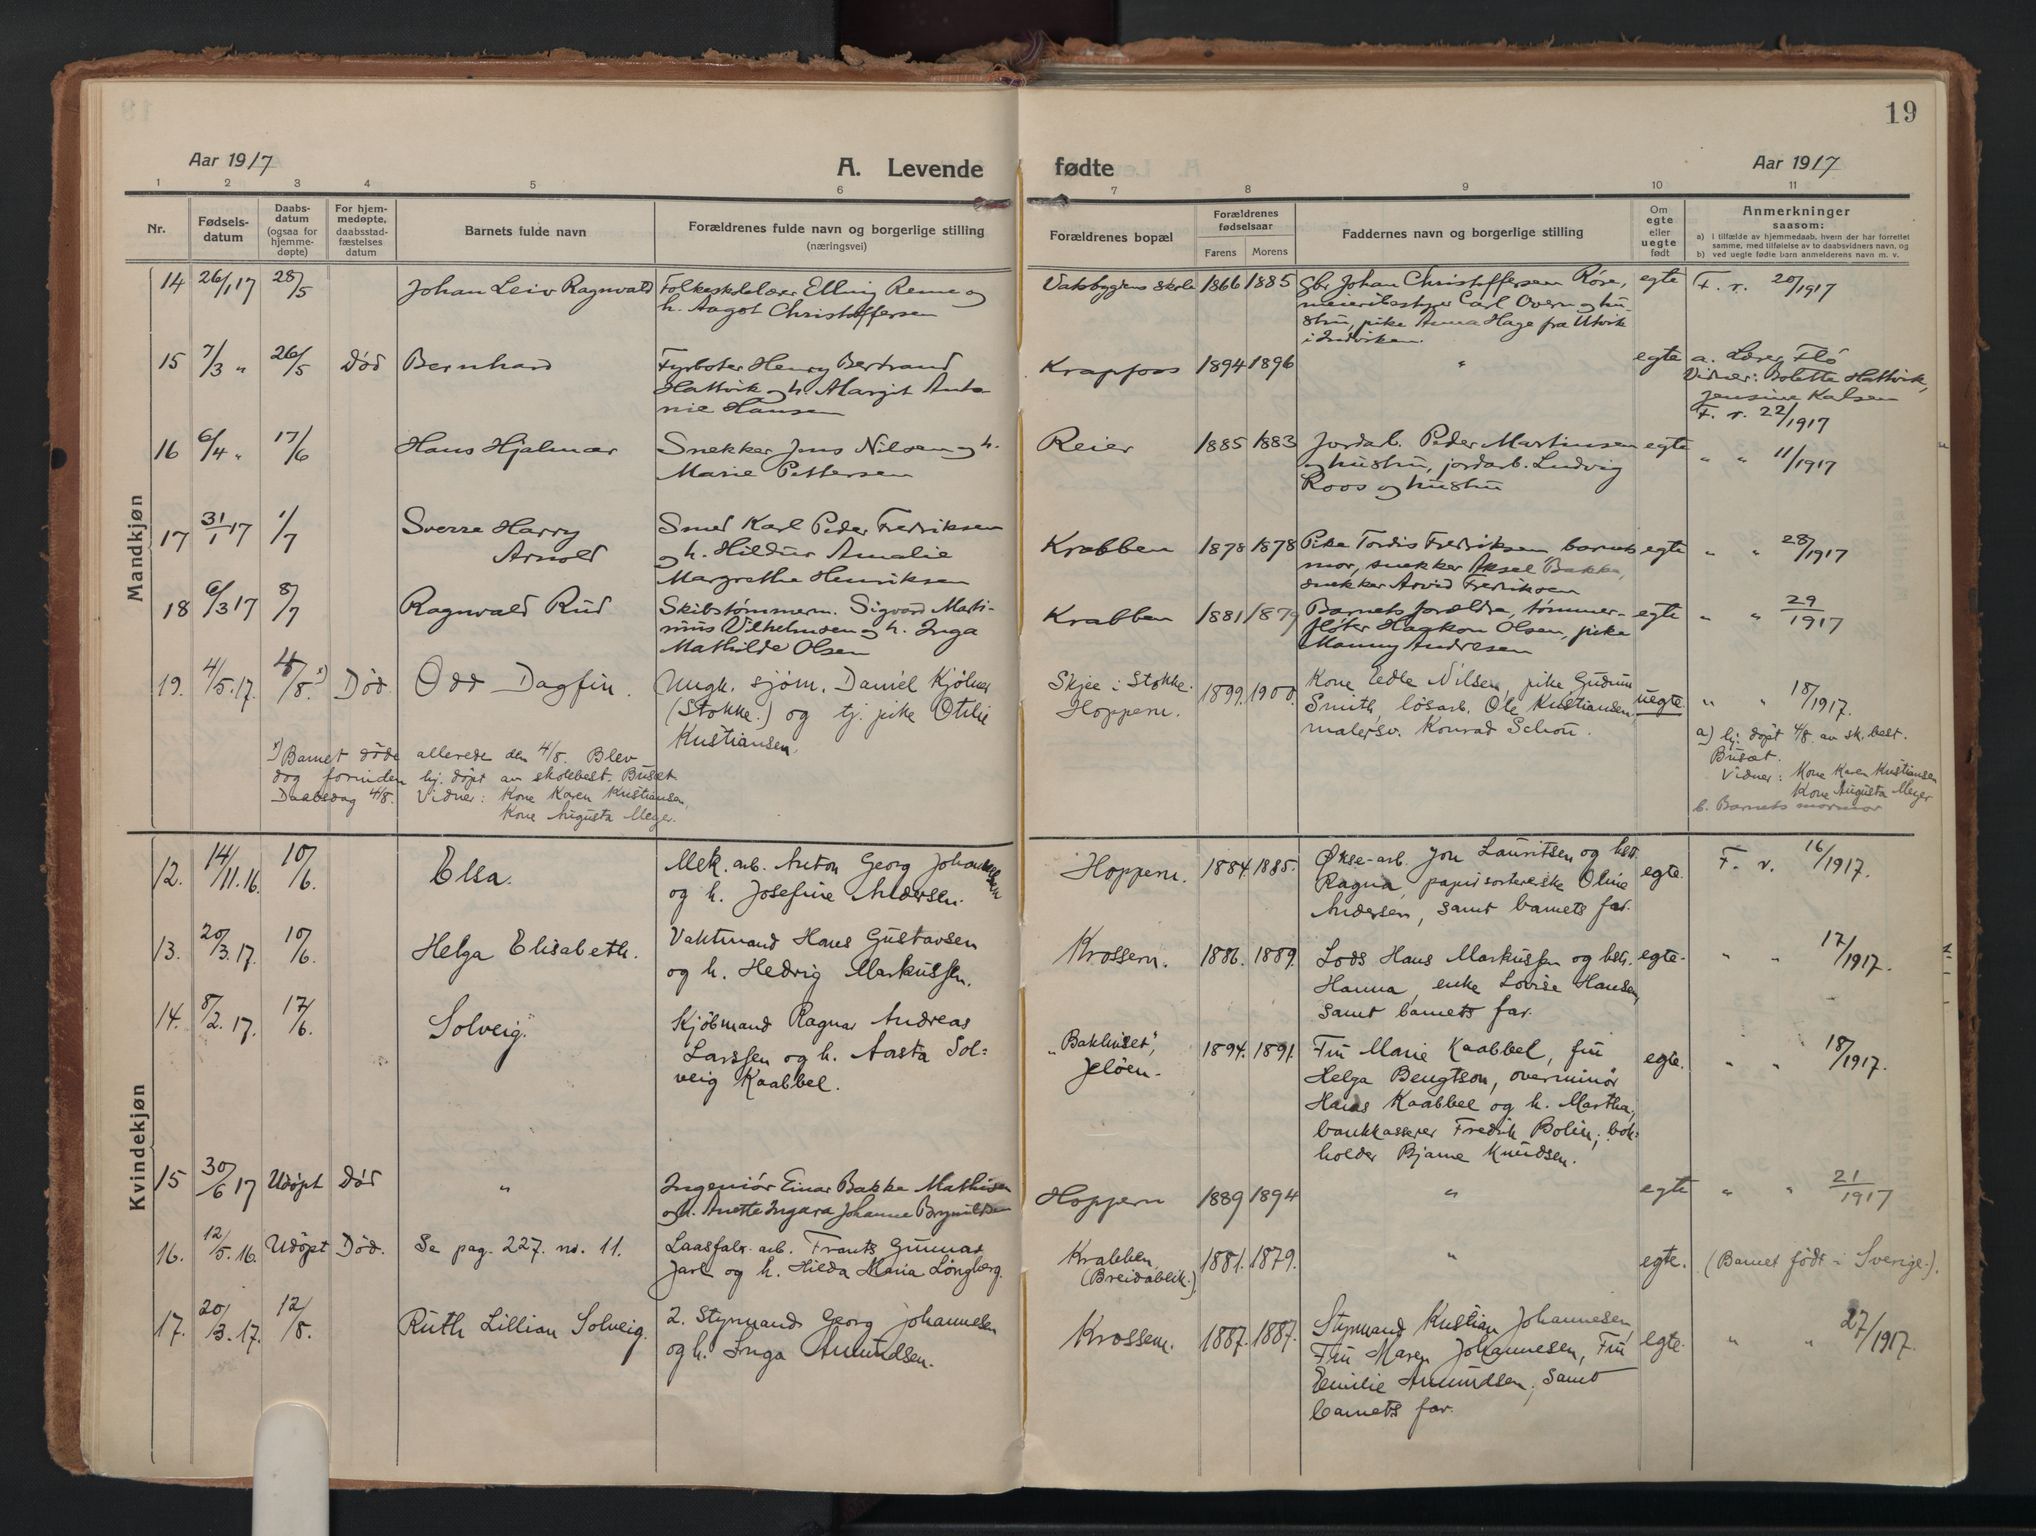 19
Aar 1917 A. Levende fødte Aar 1917
1 2 3 4 5 6 7 8 9 10 11
Nr.
Fødsels-
datum
Daabs-
datum
(ogsaa for
hjemme-
døpte)
For hjem-
medøpte,
daabsstad-
fæstelses
datum
Barnets fulde navn
Forældrenes fulde navn og borgerlige stilling
(næringsvei)
Forældrenes bopæl
Forældrenes
fødselsaar
Farens Morens
Faddernes navn og borgerlige stilling
Om
egte
eller
uegte
født
Anmerkninger
saasom:
a) i tilfælde av hjemmedaab, hvem der har forrettet
samme, med tilføielse av to daabsvidners navn, og
b) ved uegte fødte barn anmelderens navn m. v.
Mandkjøn
14 26/1 17 28/5 Johan Leiv Ragnvald
Folkeskolelærer Elling Reme og
h. Aagot Christoffersen
Vatsbygdens skole 1866 1885
Gbr Johan Christoffersen Røre,
meieribestyr Carl Overn og hu-
stru, pike Anna Hage fra Utvik
i Indviken.
egte F. v. 20/1917
15 7/3 " 26/5 Død Bernhard
Fyrbøter Henry Bertrand
Hattvik og h. Margit Anto-
nie Hansen
Krapfoss 1894 1896 " egte
a. Lærer Flø
Vidner: Bolette Hattvik,
Jensine Kalsen
F. v. 22/1917
16 6/4 " 17/6 Hans Hjalmar
Snekker Jens Nilsen og h.
Marie Pettersen
Reier 1885 1883
Jordarb. Peder Martinsen
og hustru, jordarb. Ludvig
Roos og hustru
egte " " 11/1917
17 31/1 17 1/7 Sverre Harry
Arnold
Smed Karl Peder Fredriksen
og h. Hildur Amalie
Margrethe Henriksen
Krabben 1878 1878
Pike Tordis Fredriksen barnets
mor, snekker Aksel Bakke,
snekker Arvid Fredriksen
egte " " 28/1917
18 6/3 17 8/7 Ragnvald Rud
Skibstømmerm. Sigvard Marti-
nius Vilhelmsen og h. Inga
Mathilde Olsen
Krabben 1881 1879
Barnets forældre, tømmer-
fløter Haakon Olsen, pike
Manny Andresen
egte " " 29/1917
19. 4/5.17. 4/8. x) Død. Odd Dagfin.
Ungk. sjøm. Daniel Kjølner
(Stokke.) og tj. pike Otilie
Kristiansen.
Skjee i Stokke.
Hoppern.
1899. 1900.
Kone Edle Nilsen, pike Gudrun
Smith, løsarb. Ole Kristiansen,
malersv. Konrad Schou.
uegte. " " 18/1917.
a) hj. døpt 4/8. av sk. best.
Busæt.
Vidner: Kone Karen Kristiansen
Kone Augusta Meyer
b. Barnets mormor
x) Barnet døde allerede den 4/8. Blev
dog forinden hj. døpt av skolebest. Buset
Daabsdag 4/8. Vidner: Kone Karen Kristiansen,
Kone Augusta Meyer.
Kvindekjøn
12. 14/11.16. 10/6. Elsa.
Mek. arb. Anton Georg Johannesen
og h. Josefine Andersen.
Hoppern. 1884. 1885.
Økse-arb. Jon Lauritsen og hstr.
Ragna, papirsortererske Oline
Andersen, samt barnets far.
egte. F. v. 16/1917.
13. 20/3.17. 10/6. Helga Elisabeth.
Vaktmand Hans Gustavsen
og h. Hedvig Markussen.
Krossern. 1886. 1889.
Lods Hans Markussen og hstr.
Hanna, enke Lovise Hansen,
samt barnets far.
egte. " " 17/1917.
14. 8/2.17. 17/6. Solveig.
Kjøbmand Ragnar Andreas
Larssen og h. Aasta Sol=
veig Kaabbel.
"Bakhuset",
Jeløen.
1894. 1891.
Fru Marie Kaabbel, fru
Helga Bengtson, overminør
Hans Kaabbel og h. Martha,
bankkasserer Fredrik Bolin, bok-
holder Bjarne Knudsen.
egte. " " 18/1917.
15 30/6 17 Udøpt Død "
Ingeniør Einar Bakke Mathisen
og h. Anette Ingara Johanne Brynildsen
Hoppern 1889 1894 " egte " " 21/1917
16. 12/5.16. Udøpt Død. Se pag. 227. no. 11.
Laasfabr. arb. Frants Gunnar
Jarl og h. Hilda Maria Løngberg.
Krabben
(Breidablik.)
1881. 1879. " egte. (Barnet født i Sverige.).
17. 20/3.17. 12/8. Ruth Lillian Solveig.
2. Styrmand Georg Johannesen
og h. Inga Amundsen.
Krossern. 1887. 1887.
Styrmand Kristian Johannesen
Fru Maren Johannesen, Fru
Emilie Amundsen, samt
barnets far.
egte. " " 27/1917.